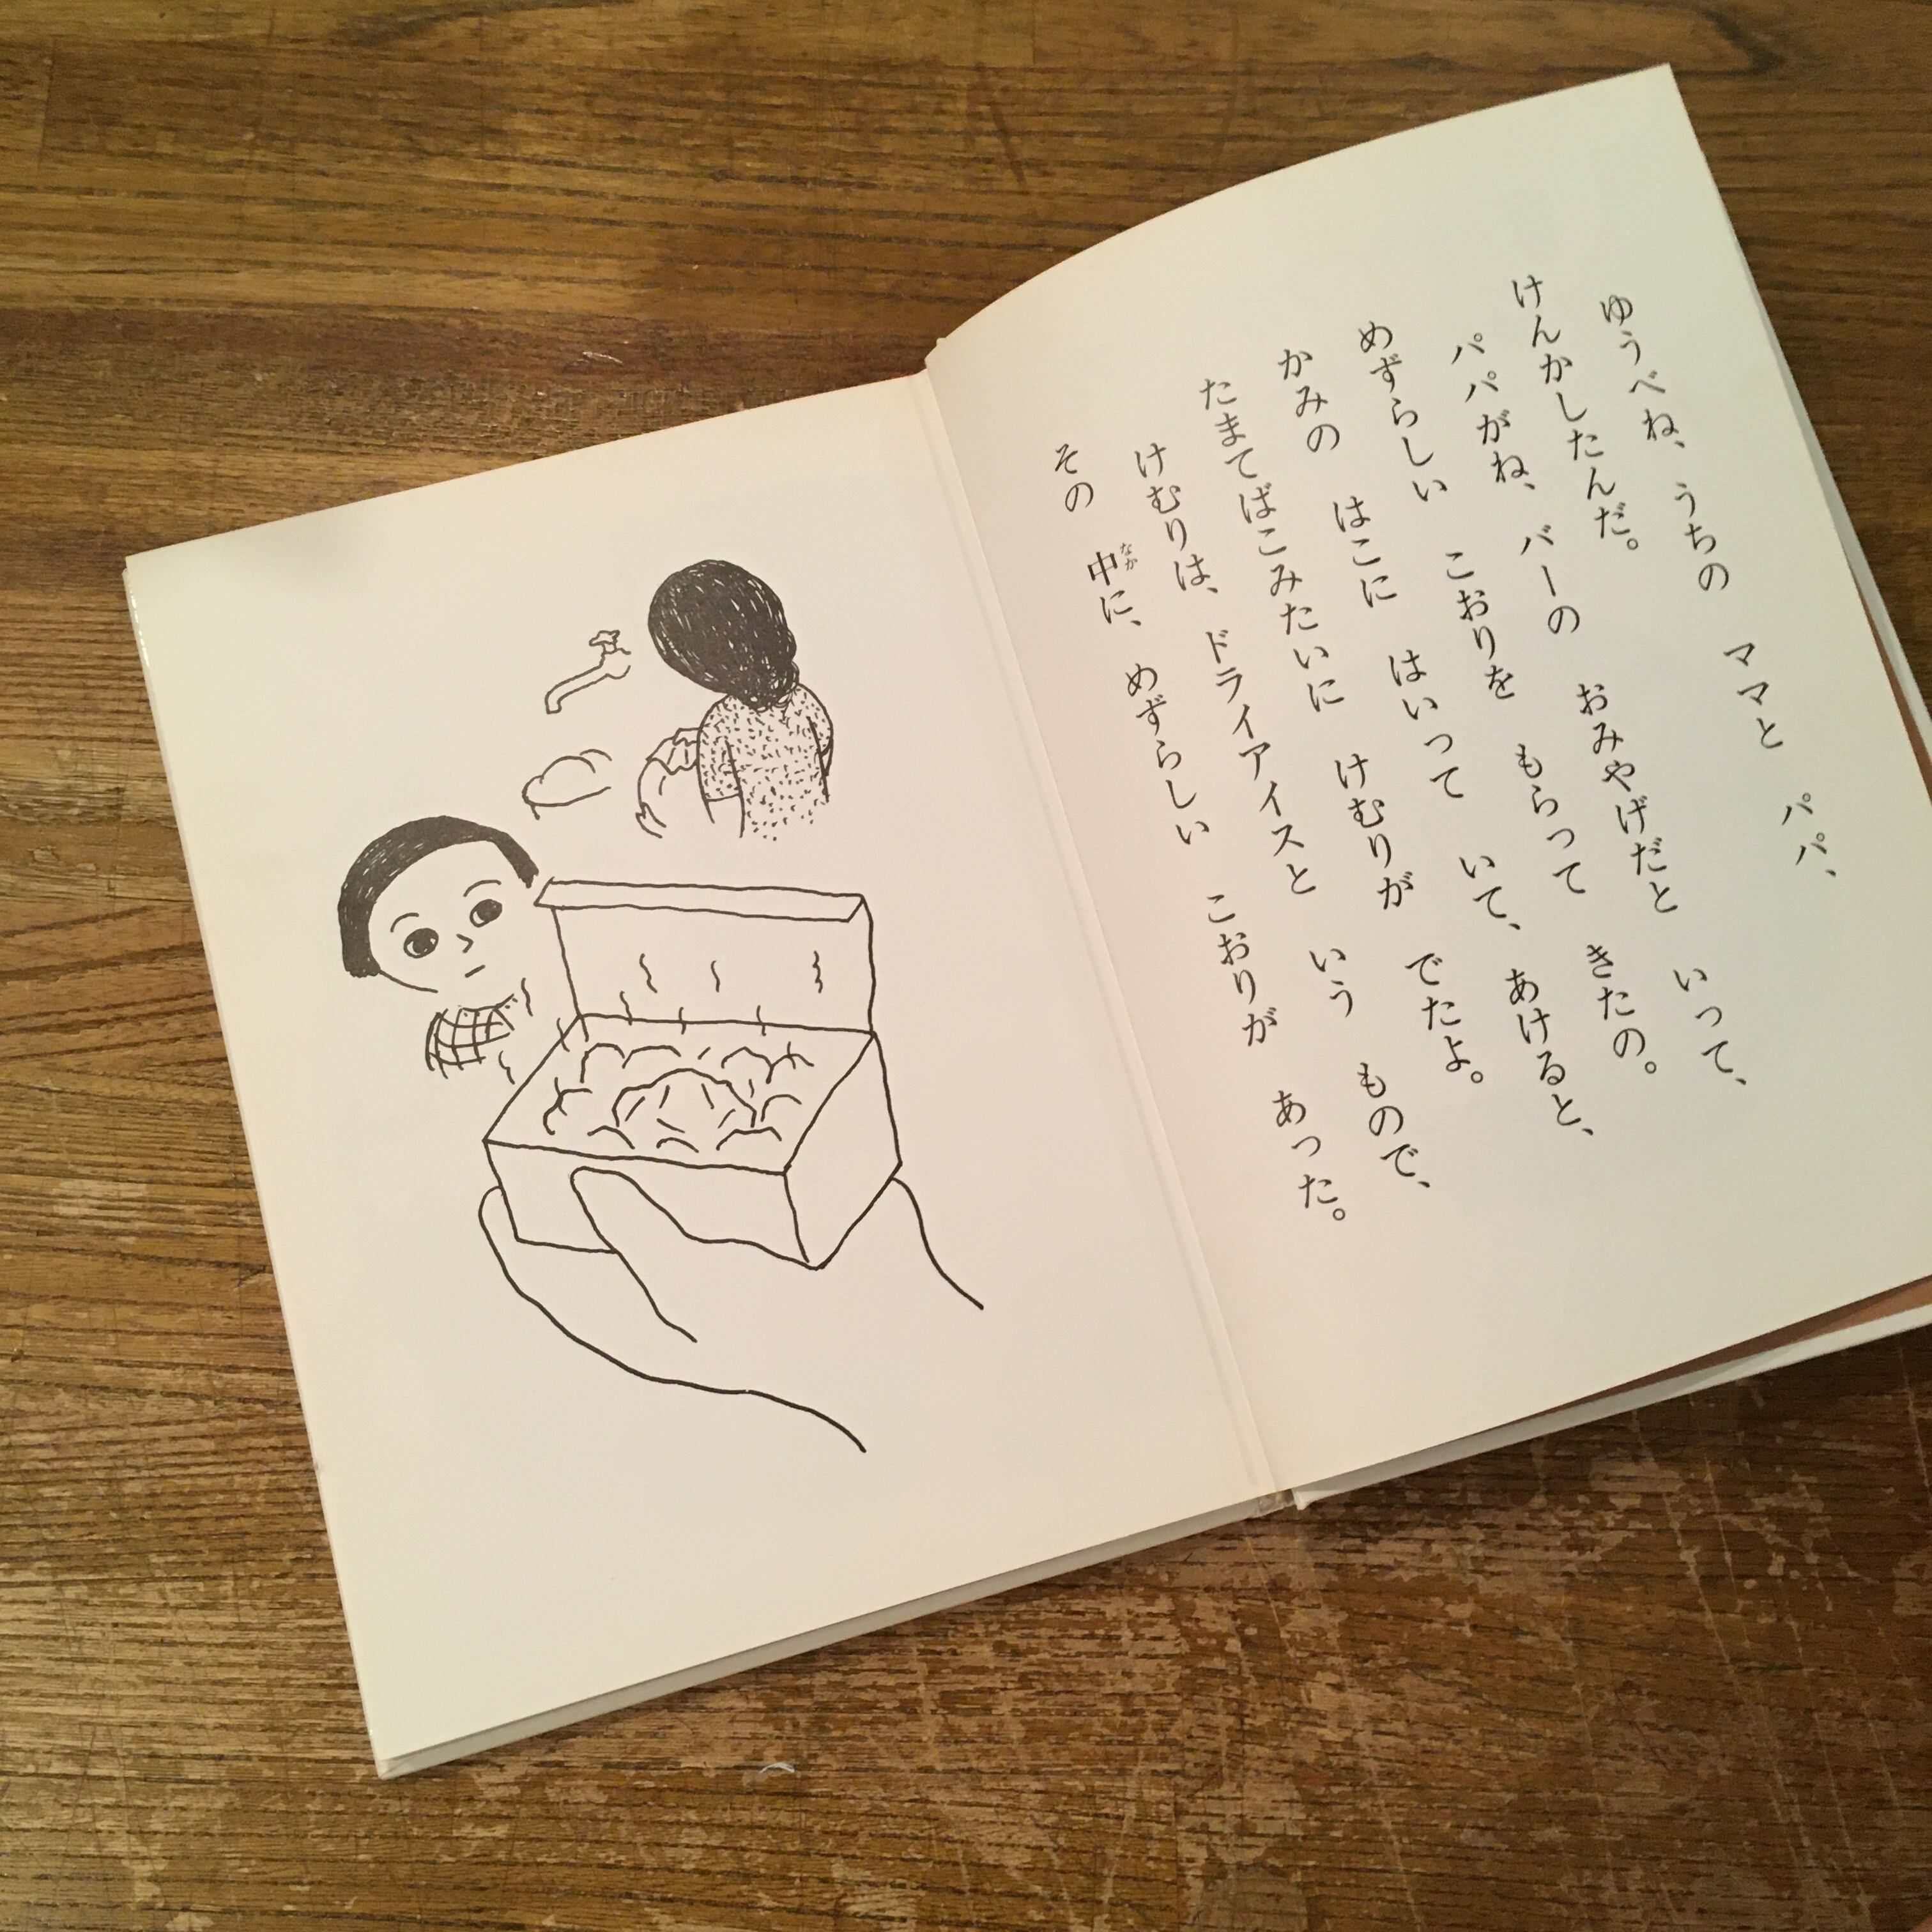 ゆうべね、うちの ママと パパ、
けんかしたんだ。
パパがね、バーの おみやげだと いって、
めずらしい こおりを もらって きたの。
かみの はこに はいって いて、あけると、
たまてばこみたいに けむりが でたよ。
けむりは、ドライアイスと いう もので、
その 中に、めずらしい こおりが あった。
なか